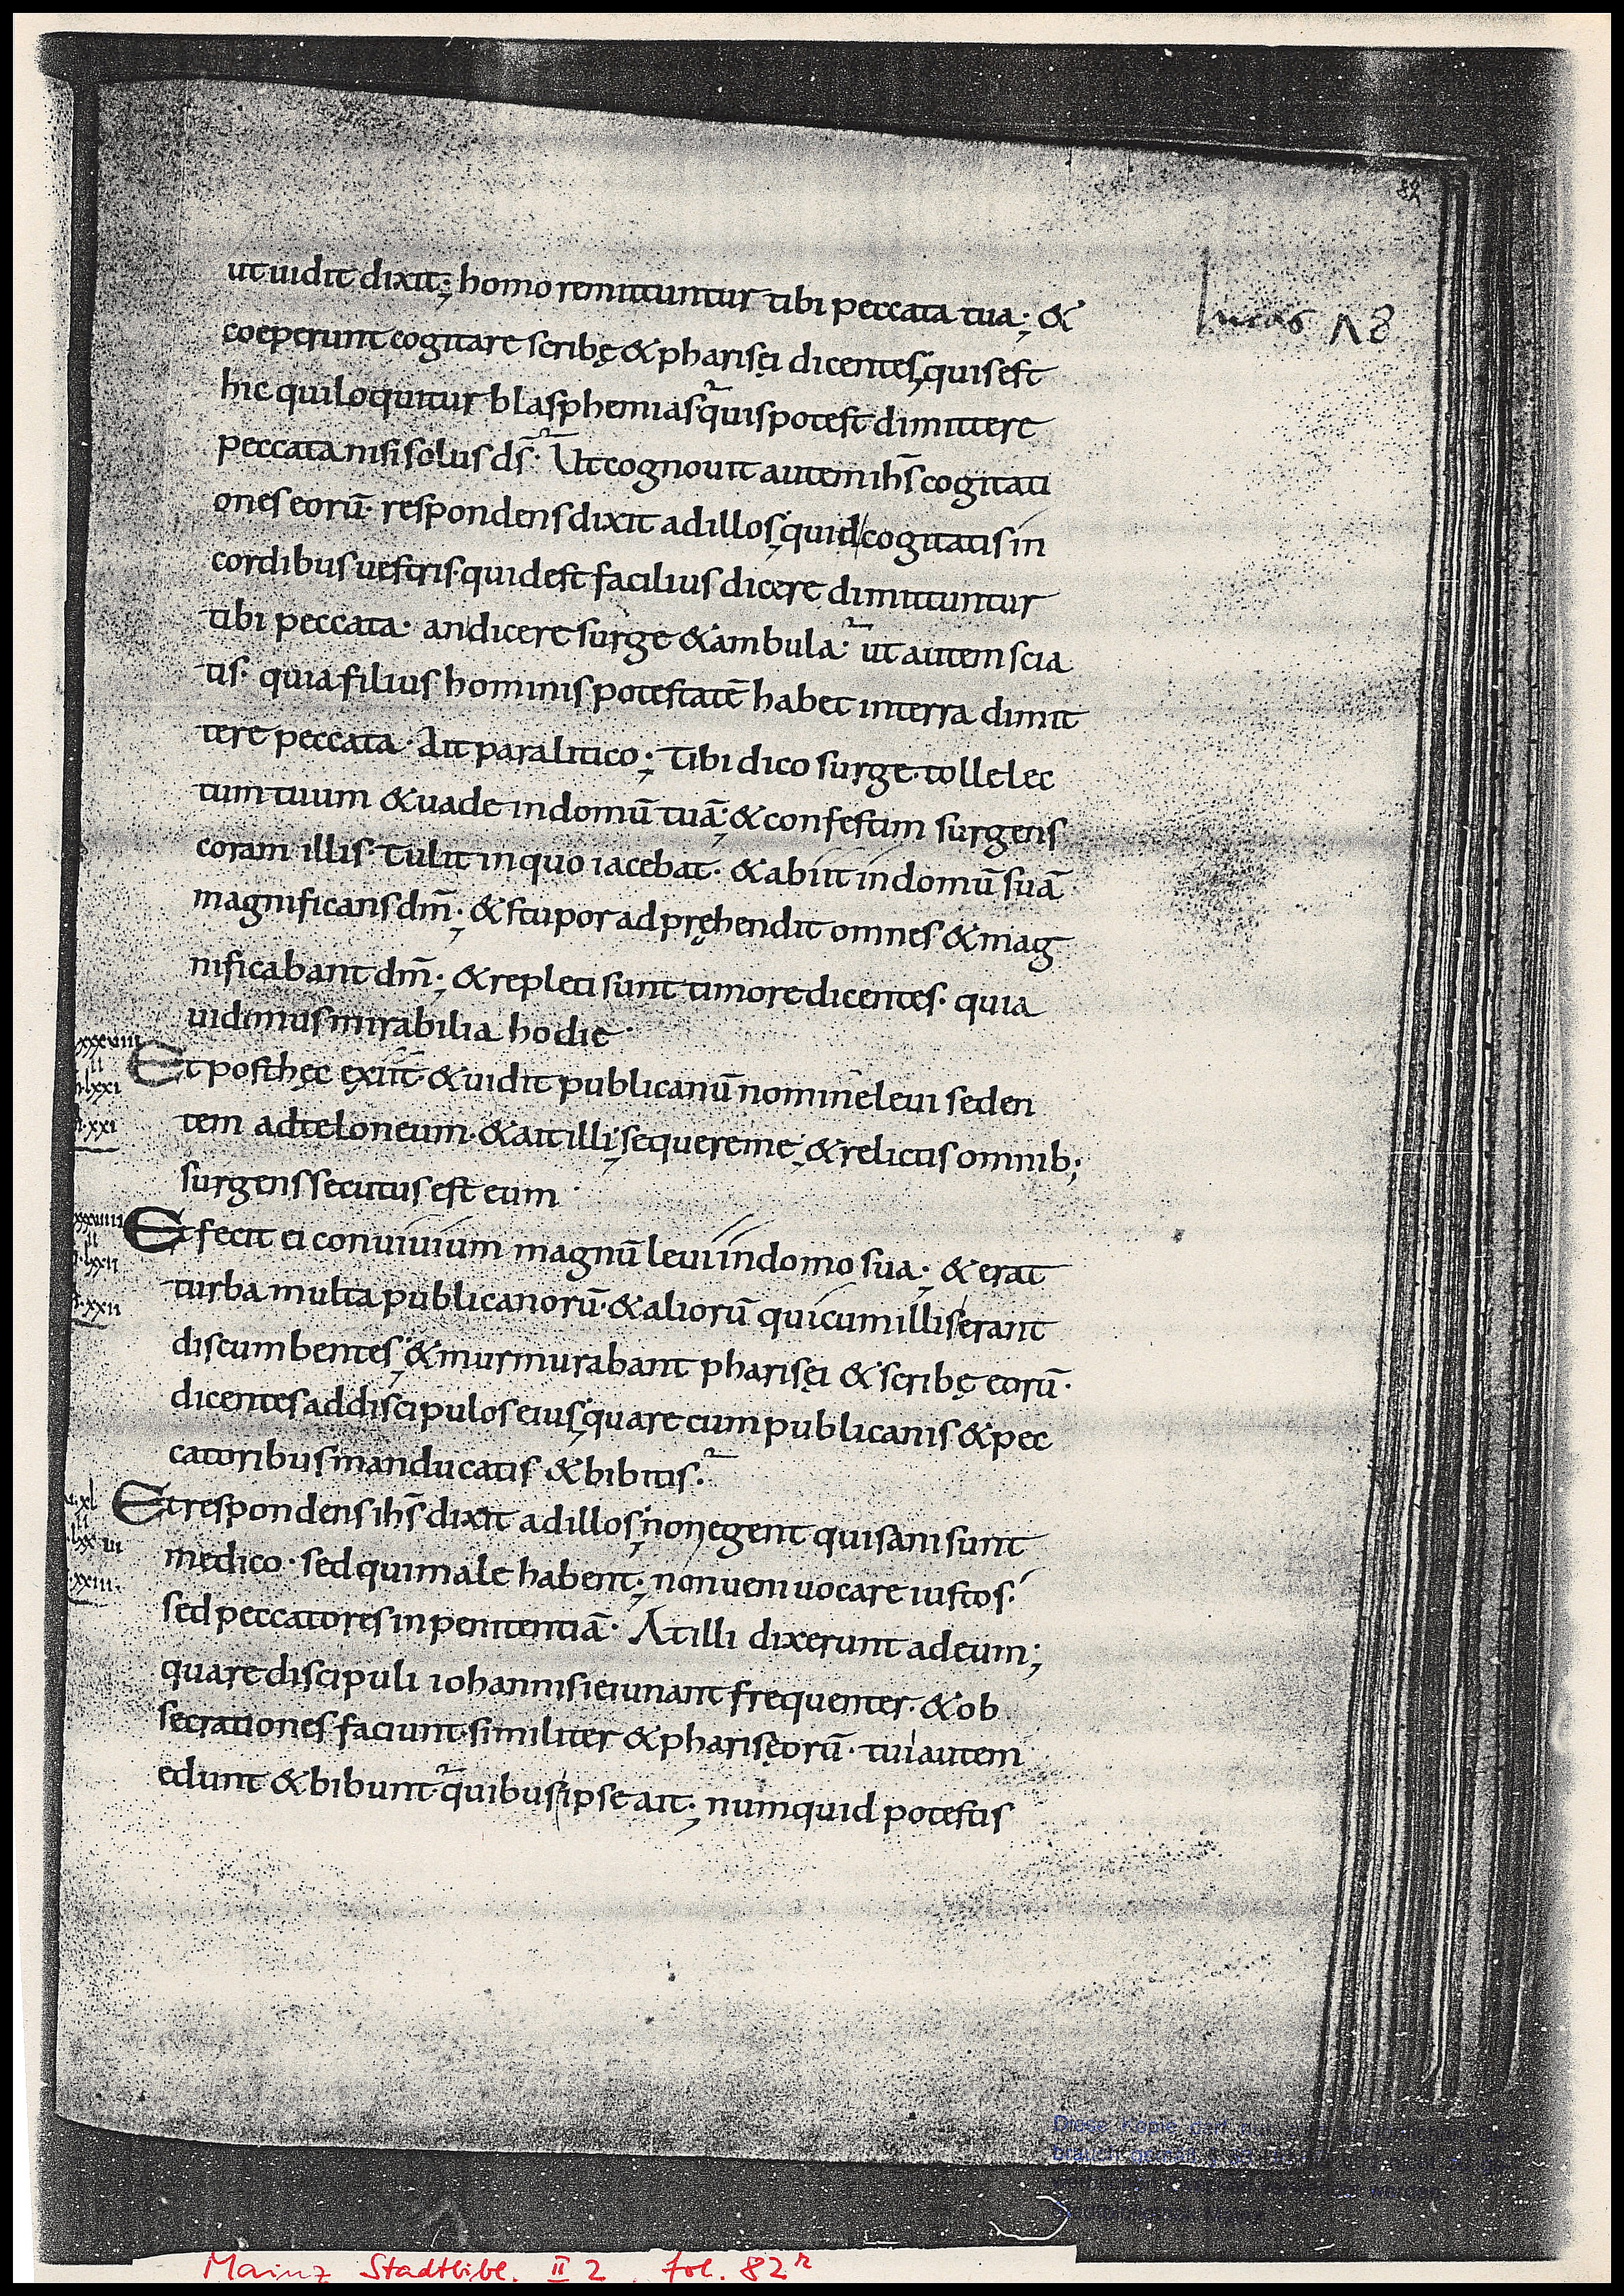 82
lucas 18
ut uidit dixit; homo remittuntur tibi peccata tua; &
coeperunt cogitare scribę & pharisęi dicentes; quis est
hic qui loquitur blasphemias quis potest dimittere
peccata nisi solus ds̄. Ut cognouit autem ihs̄ cogitati
ones eorū· respondens dixit ad illos; quid cogitatis in
cordibus uestris· quid est facilius dicere dimittuntur
tibi peccata· an dicere surge & ambula· ut autem scia
tis· quia filius hominis potestatē habet in terra dimit
tere peccata· Ait paralitico; Tibi dico surge· tolle lec
tum tuum & uade in domū tuā; & confestim surgens
coram illis· Tulit in quo iacebat· & abiit in domū suā
magnificans dm̄; & stupor adpręhendit omnes & mag
nificabant dm̄; & repleti sunt timore dicentes· quia
uidimus mirabilia hodie·
xxxviii
ii
lxxi
xxi
Et post hęc exiit· & uidit publicanū nomine leui seden
tem ad teloneum· & ait illi; sequere me; & relictis omnib;
surgens secutus est eum·
xxxviiii
ii
lxxii
xxii
Et fecit ei conuiuium magnū leui in domo sua; & erat
turba multa publicanorū· & aliorū qui cum illis erant
discumbentes; & murmurabant pharisęi & scribę eorū·
dicentes ad discipulos eius; quare cum publicanis & pec
catoribus manducatis & bibitis·
xl
ii
lxxiii
xxiii·
Et respondens ihs̄ dixit ad illos; non egent qui sani sunt
medico· sed qui male habent; non ueni uocare iustos·
sed peccatores in penitentiā· At illi dixerunt ad eum;
quare discipuli iohannis ieiunant frequenter· & ob
secrationes faciunt· similiter & pharisęorū· tui autem
edunt & bibunt· quibus ipse ait; numquid potestis
Diese Kopie darf nur
Mainz Stadtbibl. II 2, fol. 82r